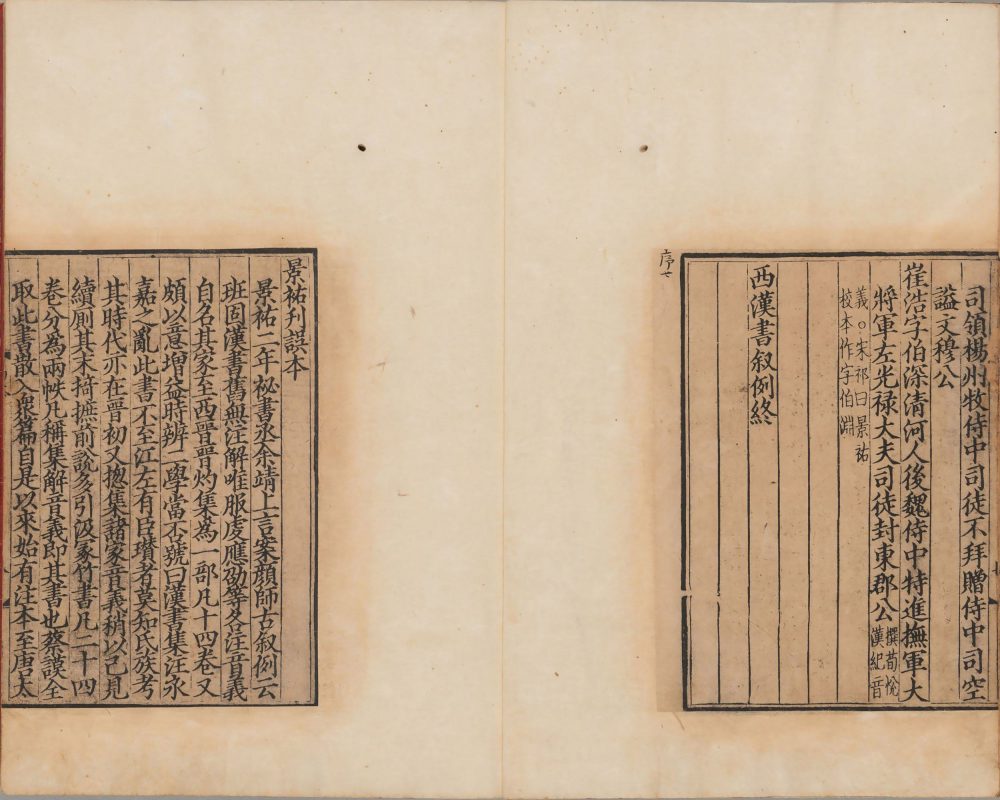 司領楊州牧侍中司徒不拜贈侍中司空
謚文穆公
崔浩字伯深清河人後魏侍中特進撫軍大
將軍左光禄大夫司徒封東郡公撰荀悅漢紀音
義○宋祁曰景祐
校本作字伯淵
西漢書叙例終
序七
景祐刊誤本
景祐二年秘書丞余靖上言案顔師古叙例云
班固漢書舊無注解唯服虔應劭等各注音義
自名其家至西晉晉灼集為一部凡十四卷又
頗以意增益時辨二學當否號曰漢書集注永
嘉之亂此書不至江左有臣瓚者莫知氏族考
其時代亦在晉初又揔集諸家音義稍以己見
續厠其末掎摭前說多引汲冢竹書凡二十四
卷分為兩帙凡稱集解音義即其書也蔡謨全
取此書散入衆篇自是以來始有注本至唐太